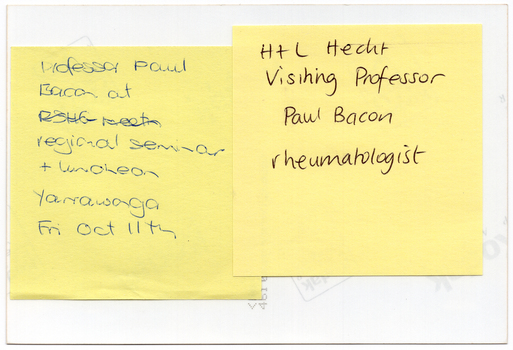 Professor Paul
Bacon at
regional seminar
+ luncheon
Yarrawonga
Fri Oct 11th
H+L Hecht
Visiting Professor
Paul Bacon
rheumatologist